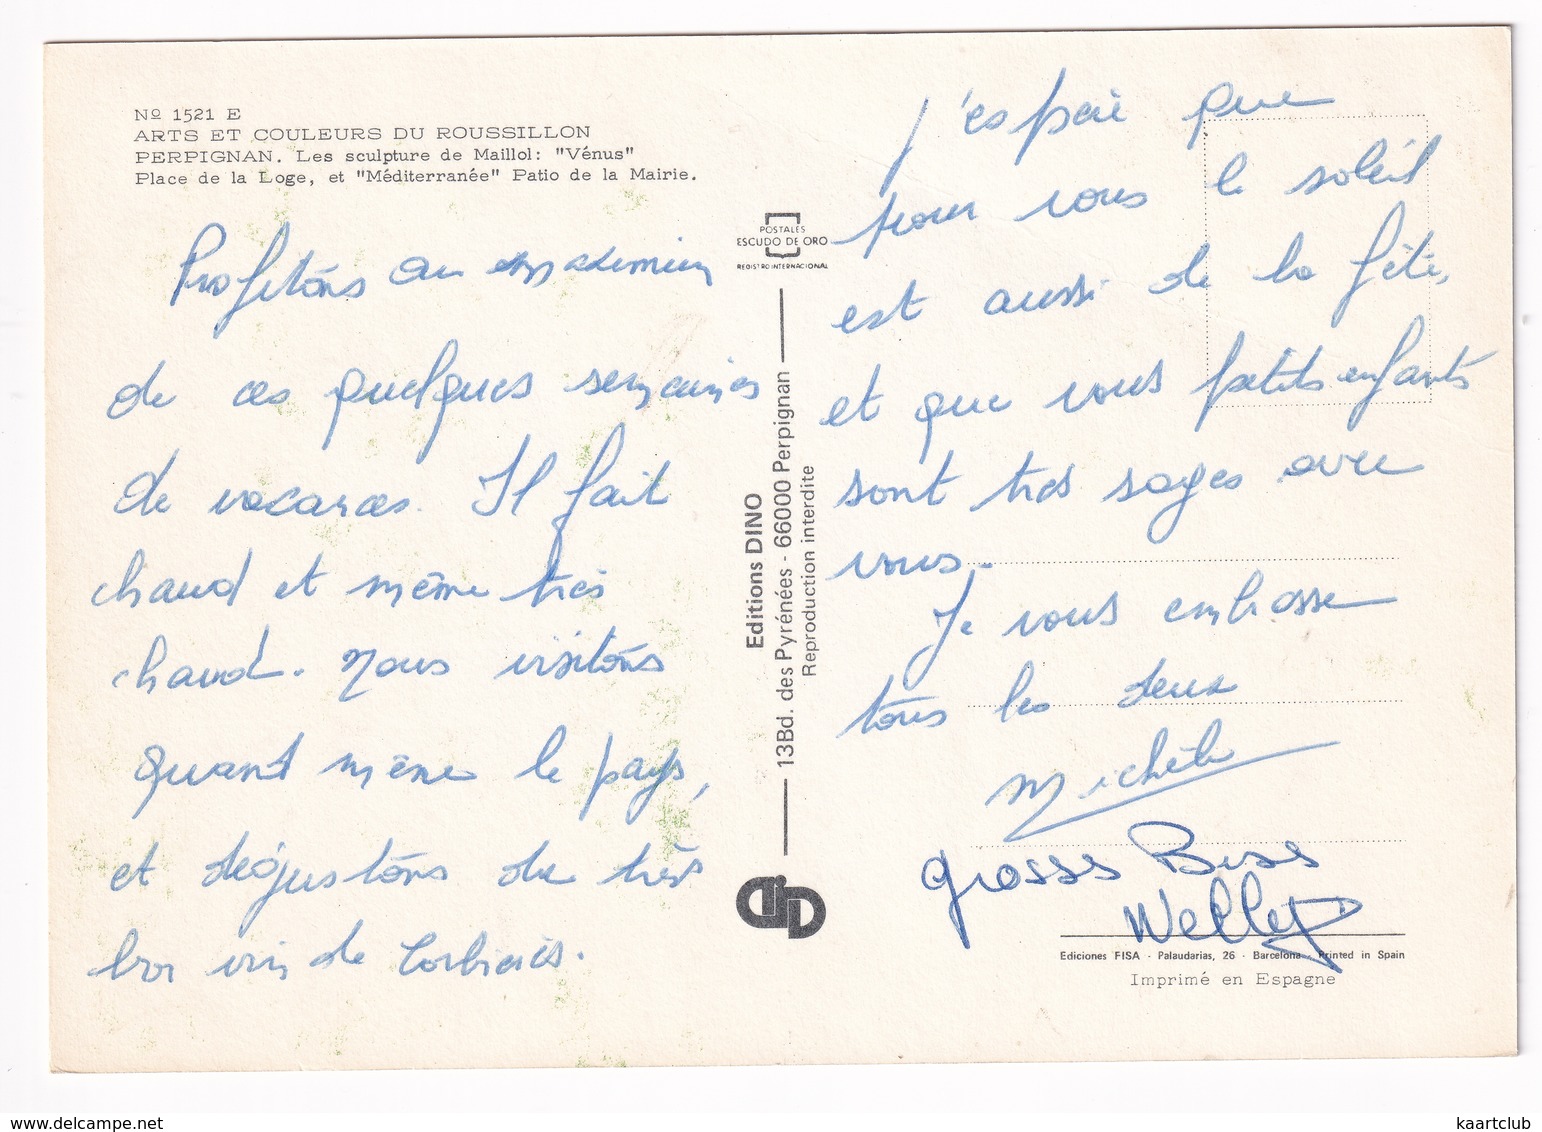 Nº 1521 E
ARTS ET COULEURS DU ROUSSILLON
PERPIGNAN. Les sculpture de Maillol: "Vénus"
Place de la Loge, et "Méditerranée" Patio de la Mairie.
Profitons au maximum
de ces quelques semaines
de vacances. Il fait
chaud et même très
chaud. Nous visitons
quand même le pays,
et dégustons du très
bon vin de Corbières.
POSTALES
ESCUDO DE ORO
REGISTRO INTERNACIONAL
Editions DINO
13Bd. des Pyrénées - 66000 Perpignan
Reproduction interdite
j'espère que
pour vous le soleil
est aussi de la fête,
et que vous petits enfants
sont très sages avec
vous.
Je vous embrasse
tous les deux
Michèle
grosses Bises
Welley
Ediciones FISA - Palaudarias, 26 - Barcelona - Printed in Spain
Imprimé en Espagne
kaartclub